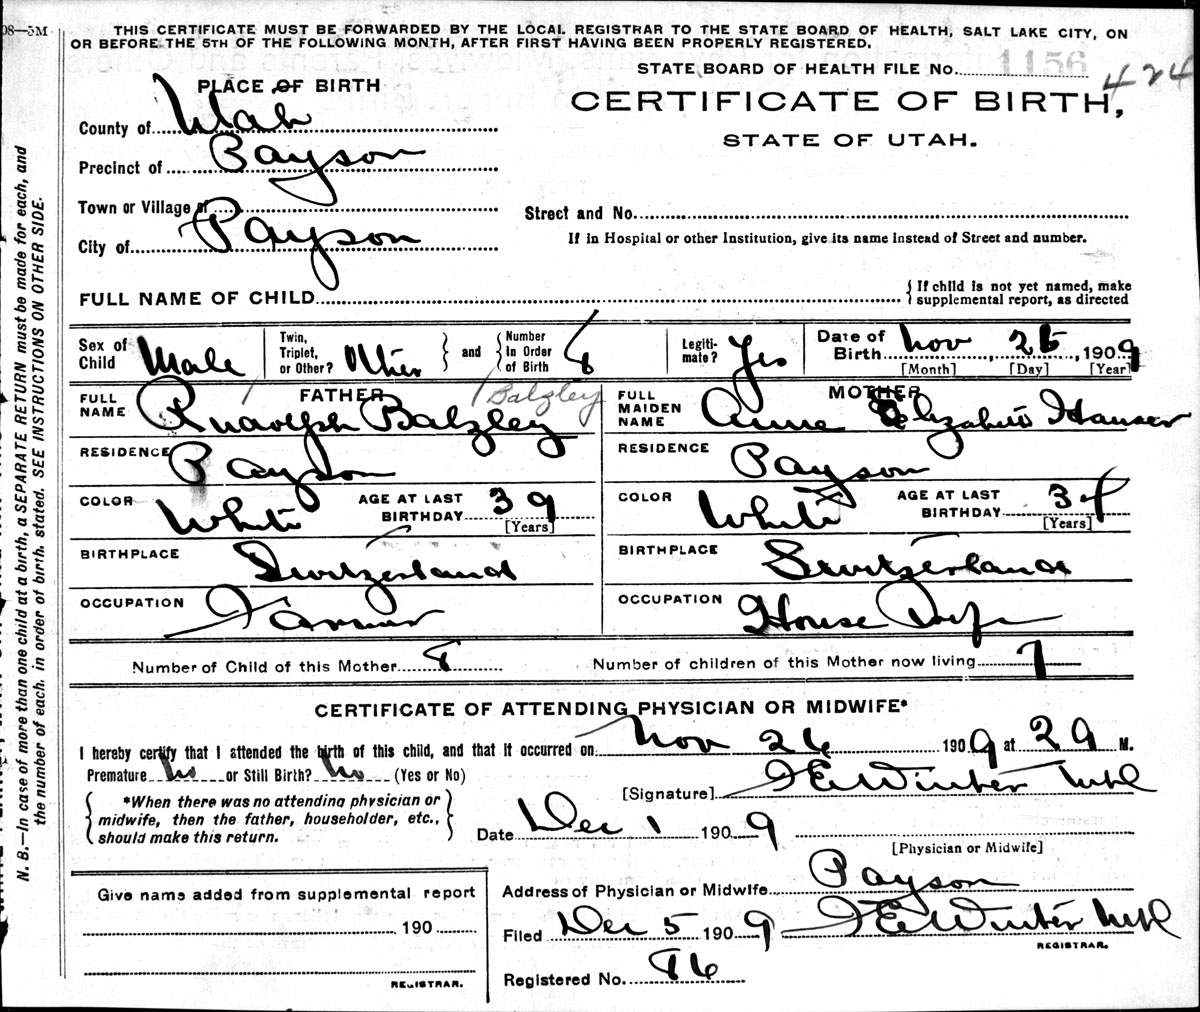 08—5M THIS CERTIFICATE MUST BE FORWARDED BY THE LOCAL REGISTRAR TO THE STATE BOARD OF HEALTH, SALT LAKE CITY, ON
OR BEFORE THE 5TH OF THE FOLLOWING MONTH, AFTER FIRST HAVING BEEN PROPERLY REGISTERED.
STATE BOARD OF HEALTH FILE NO. 1156 424
PLACE OF BIRTH
CERTIFICATE OF BIRTH,
STATE OF UTAH.
County of Utah
Precinct of Payson
Town or Village of
City of Payson
Street and No.
If in Hospital or other Institution, give its name instead of Street and number.
FULL NAME OF CHILD
{ If child is not yet named, make
supplemental report, as directed
Sex of Child Male
Twin, Triplet, or Other? Other } and { Number In Order of Birth 8
Legiti- mate? Yes
Date of Birth Nov, 26, 1909
[Month] [Day] [Year]
FATHER
FULL NAME Rudolph Balzley Balzley
RESIDENCE Payson
COLOR White AGE AT LAST BIRTHDAY 39
[Years]
BIRTHPLACE Switzerland
OCCUPATION Farmer
MOTHER
FULL MAIDEN NAME Anne Elizabeth Hauser
RESIDENCE Payson
COLOR White AGE AT LAST BIRTHDAY 34
[Years]
BIRTHPLACE Switzerland
OCCUPATION House Wife
Number of Child of this Mother 8
Number of children of this Mother now living 7
CERTIFICATE OF ATTENDING PHYSICIAN OR MIDWIFE*
I hereby certify that I attended the birth of this child, and that it occurred on Nov 26 1909 at 2 a M.
Premature No or Still Birth? No (Yes or No)
{ *When there was no attending physician or
midwife, then the father, householder, etc.,
should make this return. }
[Signature] F E Winter
Date Dec 1 1909
[Physician or Midwife]
Give name added from supplemental report
190
REGISTRAR.
Address of Physician or Midwife Payson
Filed Dec 5 1909 F E Winter
REGISTRAR.
Registered No. 86
N. B.—In case of more than one child at a birth, a SEPARATE RETURN must be made for each, and
the number of each, in order of birth, stated. SEE INSTRUCTIONS ON OTHER SIDE.